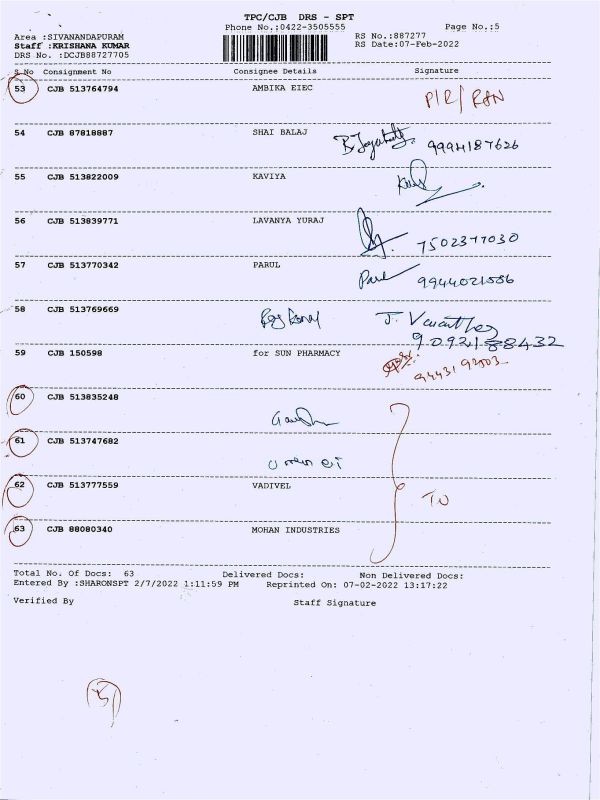 TPC/CJB DRS - SPT
Phone No.:0422-3505555 Page No.:5
Area :SIVANANDAPURAM RS No.:887277
Staff :KRISHANA KUMAR RS Date:07-Feb-2022
DRS No. :DCJB88727705
S.No Consignment No Consignee Details Signature
53 CJB 513764794 AMBIKA EIEC P/R/RAN
54 CJB 87818887 SHAI BALAJ 9994187626
55 CJB 513822009 KAVIYA
56 CJB 513839771 LAVANYA YURAJ 7502377030
57 CJB 513770342 PARUL Parul 9944021586
58 CJB 513769669 J.
59 CJB 150598 for SUN PHARMACY 9443192503
60 CJB 513835248
61 CJB 513747682
62 CJB 513777559 VADIVEL TO
63 CJB 88080340 MOHAN INDUSTRIES
Total No. Of Docs: 63 Delivered Docs: Non Delivered Docs:
Entered By :SHARONSPT 2/7/2022 1:11:59 PM Reprinted On: 07-02-2022 13:17:22
Verified By Staff Signature